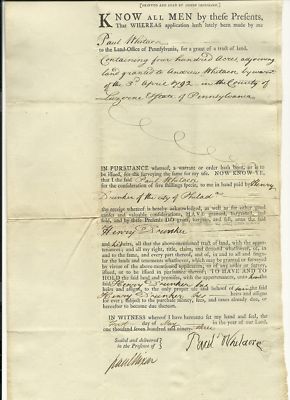 KNOW ALL MEN by these Presents,
That Whereas application hath lately been made by me
Paul Whitaen
to the Land-Office of Pennsylvania, for a grant of a tract of land.
Containing four hundred Acres adjoining
land granted to Andrew Whitaen by warrant
of the 3d April 1792 in the County of
Luzerne & State of Pennsylvania
IN PURSUANCE whereof, a warrant or order hath been, or is to
be issued, for the surveying the same for my use. NOW KNOW YE,
that I the said Paul Whitaen
for the consideration of five shillings specie, to me in hand paid by Henry
Drinker of the city of Philada
the receipt whereof is hereby acknowledged, as well as for other good
and valuable considerations, HAVE granted, bargained,
sold, and by these Presents DO grant, bargain, and sell, unto the said
Henry Drinker
and heirs, all that the above-mentioned tract of land, with the appur-
tenances; and all my right, title, claim, and demand whatsoever, of, in and
to the same, and every part thereof, and of, in and to all and singular
the lands and tenements whatsoever, which may be granted or surveyed
by virtue of the above-mentioned application, or of any order or warrant
issued, or to be issued in pursuance thereof; TO HAVE AND TO
HOLD the said land and premises, with the appurtenances, unto
said Henry Drinker his
heirs and assigns, to the only proper use and behoof of
Henry Drinker his heirs and assigns
for ever; subject to the purchase money, and taxes already due, or
hereafter to become due thereon.
IN WITNESS whereof I have hereunto set my hand and seal, the
First day of May in the year of our Lord,
one thousand seven hundred and ninety three
Sealed and delivered
in the Presence of
Paul Whitaen